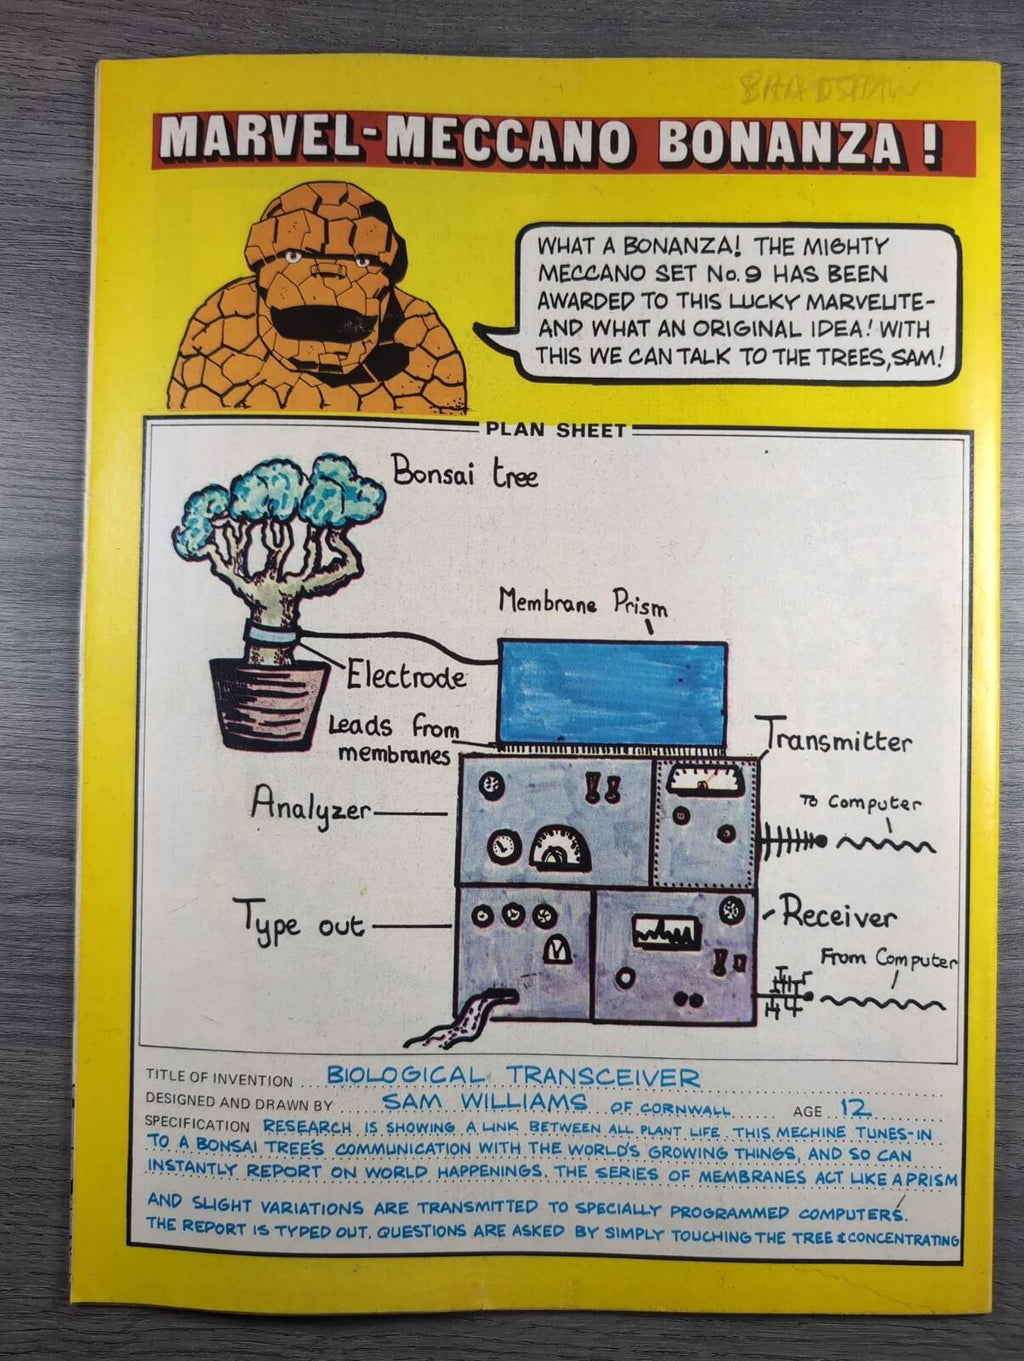 BRADSHAW
MARVEL-MECCANO BONANZA!
WHAT A BONANZA! THE MIGHTY
MECCANO SET No. 9 HAS BEEN
AWARDED TO THIS LUCKY MARVELITE-
AND WHAT AN ORIGINAL IDEA! WITH
THIS WE CAN TALK TO THE TREES, SAM!
PLAN SHEET
Bonsai tree
Membrane Prism
Electrode
Leads from
membranes
Transmitter
Analyzer
To Computer
Type out
Receiver
From Computer
TITLE OF INVENTION BIOLOGICAL TRANSCEIVER
DESIGNED AND DRAWN BY SAM WILLIAMS OF CORNWALL AGE 12
SPECIFICATION RESEARCH IS SHOWING A LINK BETWEEN ALL PLANT LIFE. THIS MECHINE TUNES-IN
TO A BONSAI TREE'S COMMUNICATION WITH THE WORLD'S GROWING THINGS, AND SO CAN
INSTANTLY REPORT ON WORLD HAPPENINGS. THE SERIES OF MEMBRANES ACT LIKE A PRISM
AND SLIGHT VARIATIONS ARE TRANSMITTED TO SPECIALLY PROGRAMMED COMPUTERS.
THE REPORT IS TYPED OUT. QUESTIONS ARE ASKED BY SIMPLY TOUCHING THE TREE & CONCENTRATING